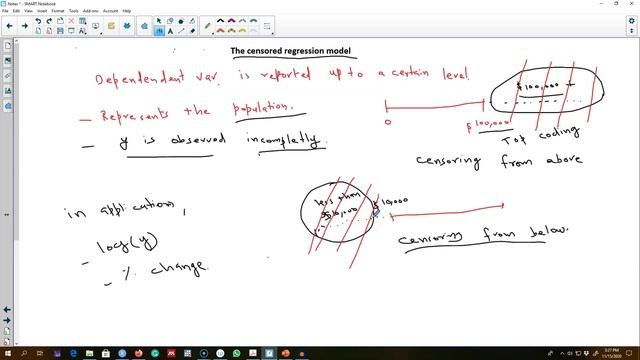 Notes * - SMART Notebook
File Edit View Insert Format Tools Add-ons Help
The censored regression model
Dependent var. is reported up to a certain level.
$100,000 +
- Represents the population.
0
$100,000
Top coding
- y is observed incompletly.
Censoring from above
less than
$10,000
$10,000
in application,
censoring from below.
- log(y)
- % change
3:27 PM
11/15/2020